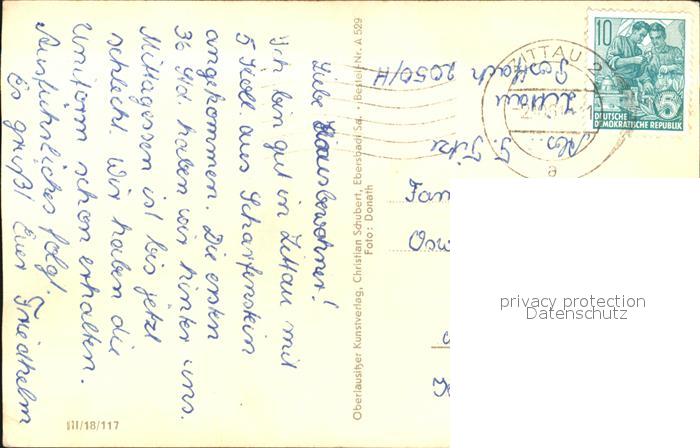 Liebe Hausbewohner!
Ich bin gut in Zittau mit
5 Soll. aus Scharfenstein
angekommen. Die ersten
36 Std haben wir hinter uns.
Mittagessen ist bis jetzt
schlecht. Wir haben die
Uniform schon erhalten.
Ausführliches folgt.
Es grüßt Euer Friedhelm
III/18/117
Oberlausitzer Kunstverlag, Christian Schubert, Ebersbach Sa., Bestell-Nr. A 529
Foto: Donath
Abs.
Zittau
Postfach 2050/H
ZITTAU 2
a
10
5
DEUTSCHE
DEMOKRATISCHE REPUBLIK
Fam
Osw
privacy protection
Datenschutz